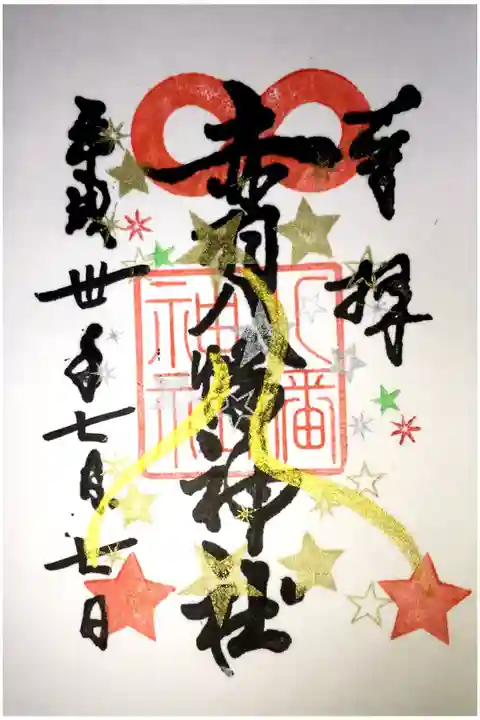 奉拝
赤羽八幡神社
平成卅年七月廿日
八幡
神社